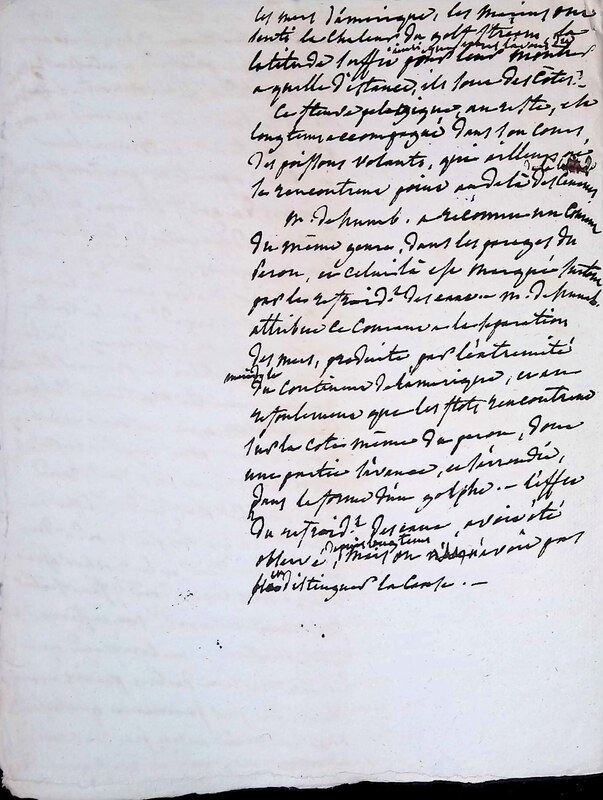 les mers d'amérique, les marins ont
senti la chaleur du golf stream, la
latitude suffit pour leur montrer
a quelle distance, ils sont des côtes.
Ce fleuve pelagique, au reste, est
longtems accompagné dans son cours
des poissons volants, qui ailleurs ne
se rencontrent point au delà des
M. de humb. a reconnu un courant
du même genre, dans les parages du
Perou, et celui là est marqué surtout
par les refroid.t des eaux. M. de humb.
attribue ce courant a la separation
des mers, produite par l'extremité
méridle
du continent de l'amerique, et au
refoulement que les flots rencontrent
sur la cote même du perou, dont
une partie s'avance, et s'arrondit,
dans la forme d'un golphe. — l'effet
du refroid.t des eaux, avoit été
depuis longtems
observé, mais on n'avoit pas
distingué la cause. —